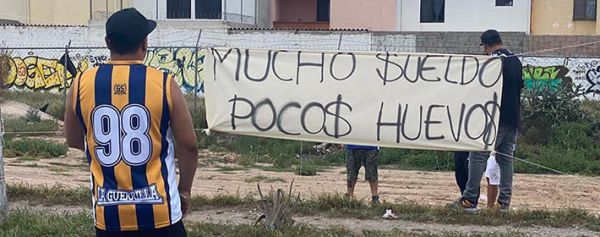 MUCHO $UELDO
POCO$ HUEVO$
98
LA GUERRILLA